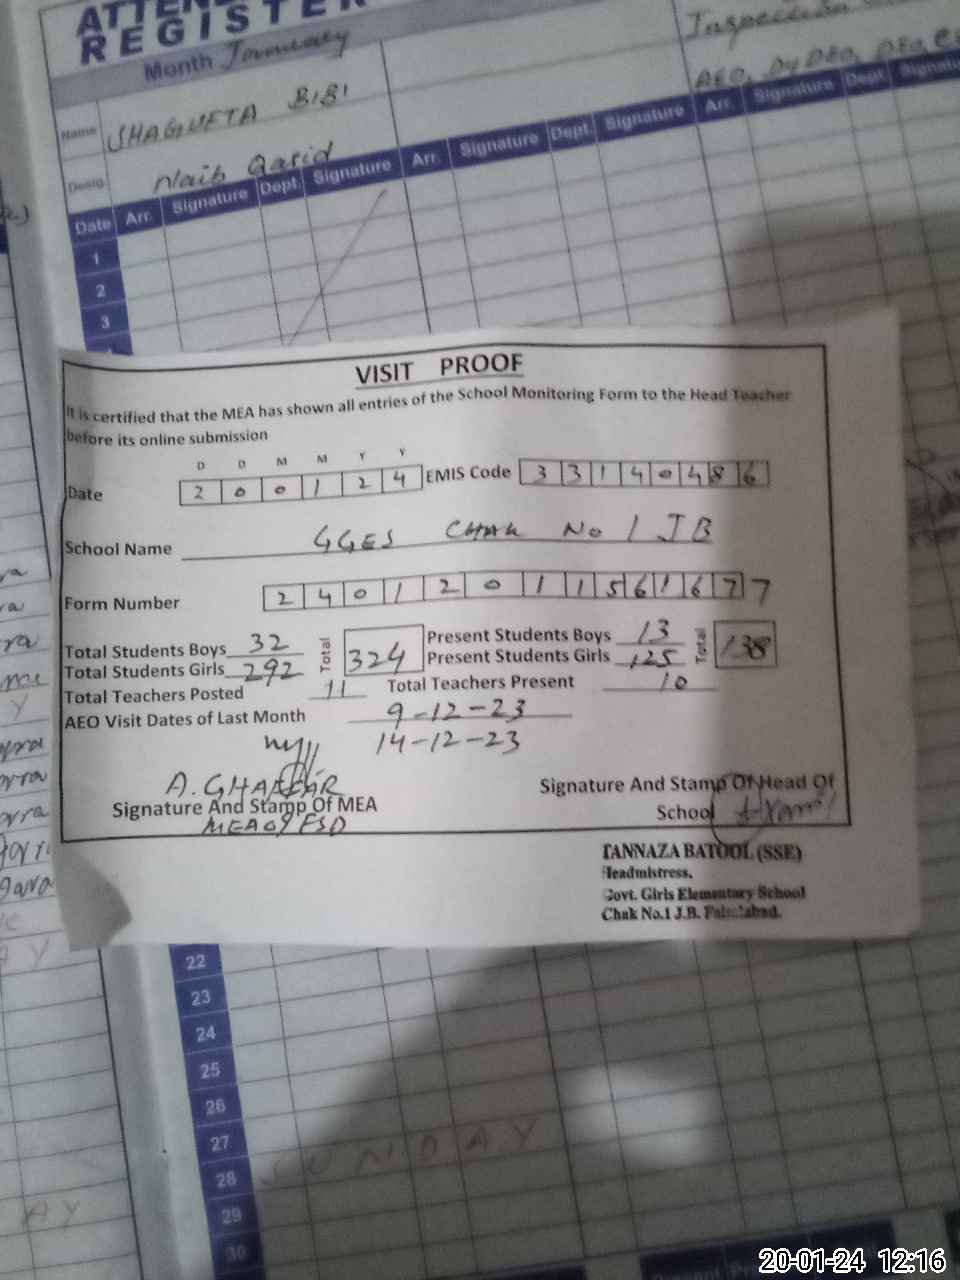 REGISTER
Month January
Inspection
AEO, Dy DEO, DEO,
Name SHAGUFTA BIBI
Desig. Naib Qasid
Date Arr. Signature Dept. Signature Arr. Signature Dept. Signature Arr. Signature Dept. Signatu
1
2
3
VISIT PROOF
It is certified that the MEA has shown all entries of the School Monitoring Form to the Head Teacher
before its online submission
D D M M Y Y
Date 2 0 0 1 2 4 EMIS Code 3 3 1 4 0 4 8 6
School Name GGES CHAK No 1 JB
Form Number 2 4 0 1 2 0 1 1 5 6 1 6 7 7
Total Students Boys 32 Total 324 Present Students Boys 13 Total 138
Total Students Girls 292 Present Students Girls 125
Total Teachers Posted 11 Total Teachers Present 10
AEO Visit Dates of Last Month 9-12-23
14-12-23
A. GHAFFAR
Signature And Stamp Of MEA
MEA 09 FSD
Signature And Stamp Of Head Of
School
TANNAZA BATOOL (SSE)
Headmistress.
Govt. Girls Elementary School
Chak No.1 J.B. Faisalabad.
22
23
24
25
26
27
28 SUNDAY
29
30
20-01-24 12:16